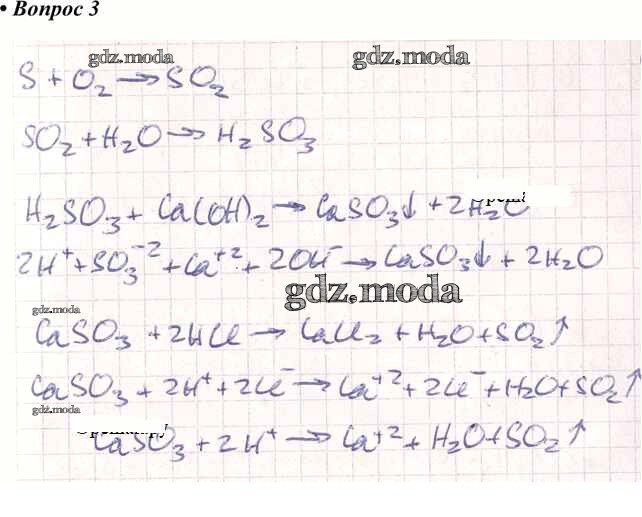 • Вопрос 3
gdz.moda gdz.moda
S + O₂ → SO₂
SO₂ + H₂O → H₂SO₃
H₂SO₃ + Ca(OH)₂ → CaSO₃↓ + 2H₂O
2H⁺ + SO₃⁻² + Ca⁺² + 2OH⁻ → CaSO₃↓ + 2H₂O
gdz.moda
gdz.moda
CaSO₃ + 2HCl → CaCl₂ + H₂O + SO₂↑
CaSO₃ + 2H⁺ + 2Cl⁻ → Ca⁺² + 2Cl⁻ + H₂O + SO₂↑
gdz.moda
CaSO₃ + 2H⁺ → Ca⁺² + H₂O + SO₂↑